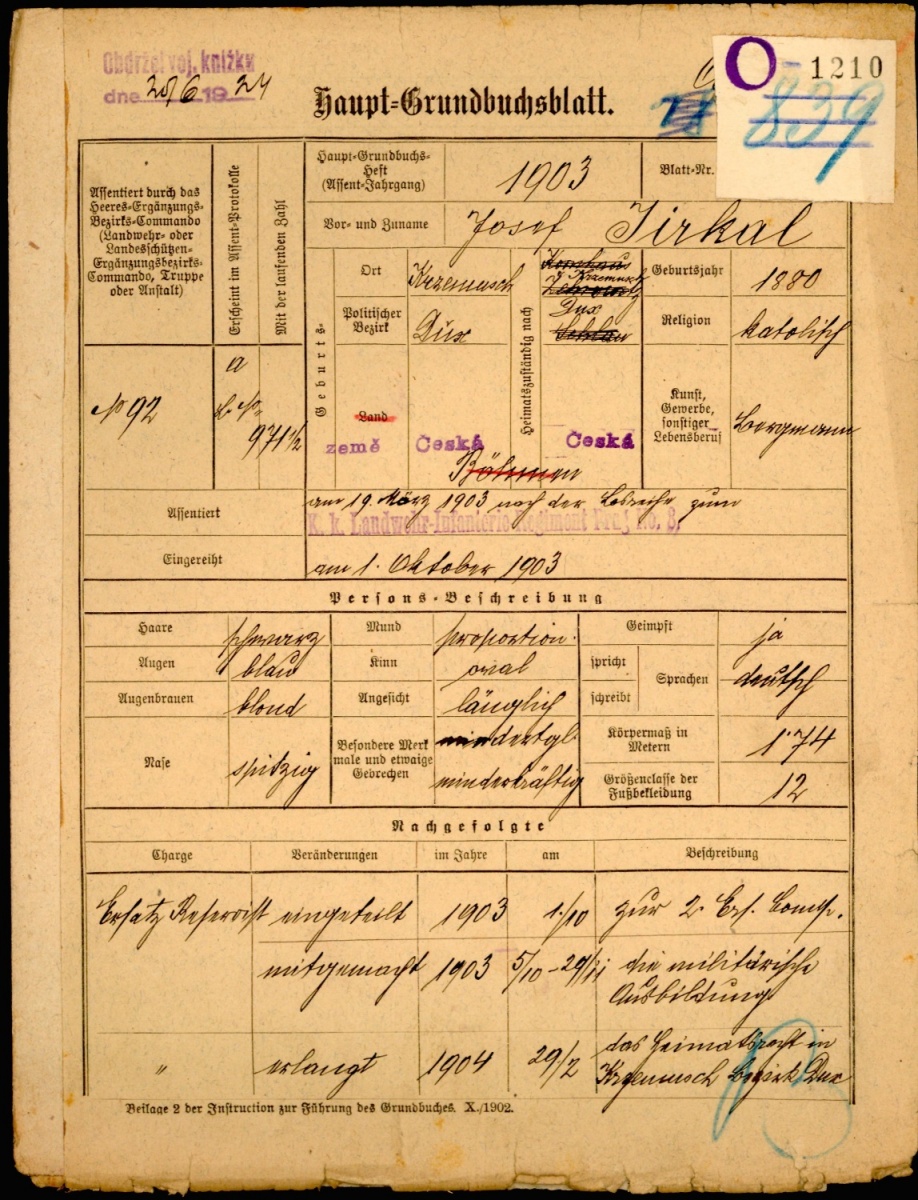 Obdržel voj. knížku
dne 20/6 1924
O-1210
839
Haupt-Grundbuchsblatt.
Assentiert durch das
Heeres-Ergänzungs-
Bezirks-Commando
(Landwehr- oder
Landesschützen-
Ergänzungsbezirks-
Commando, Truppe
oder Anstalt)
No 92
Erscheint im Assent-Protokolle
a
Mit der laufenden Zahl
971 1/2
Haupt-Grundbuchs-
Heft
(Assent-Jahrgang)
1903
Blatt-Nr.
Vor- und Zuname
Josef Jirkal
Geburts-
Ort
Krzemusch
Politischer
Bezirk
Dux
Land
země Česká
Böhmen
Heimatszuständig nach
Krzemusch
Dux
Česká
Geburtsjahr
1880
Religion
katolisch
Kunst,
Gewerbe,
sonstiger
Lebensberuf
Bergmann
Assentiert
am 19. März 1903 nach der Losreihe zum
K. k. Landwehr-Infanterie-Regiment Prag No. 8,
Eingereiht
am 1. Oktober 1903
Persons-Beschreibung
Haare
schwarz
Augen
blau
Augenbrauen
blond
Nase
spitzig
Mund
proportion.
Kinn
oval
Angesicht
länglich
Besondere Merk
male und etwaige
Gebrechen
mindertgl.
minderkräftig
Geimpft
ja
spricht
schreibt
Sprachen
deutsch
Körpermaß in
Metern
1·74
Größenclasse der
Fußbekleidung
12
Nachgefolgte
Charge Veränderungen im Jahre am Beschreibung
Ersatz Reservist eingeteilt 1903 1./10 zur 2. Ers. Comp.
mitgemacht 1903 5/10 - 29/11 die militärische
Ausbildung
" erlangt 1904 29/2 das Heimatsrecht in
Krzemusch Bezirk Dux
Beilage 2 der Instruction zur Führung des Grundbuches. X./1902.